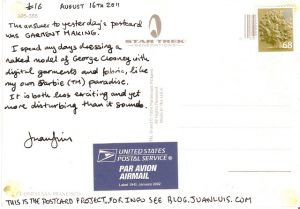 #16 AUGUST 16TH 2011
The answer to yesterday's postcard
was GARMENT MAKING.
I spend my days dressing a
naked model of George Clooney with
digital garments and fabric, like
my own Barbie (TM) paradise.
It is both less exciting and yet
more disturbing than it sounds.
Juanluis
STAR TREK
68
UNITED STATES
POSTAL SERVICE
PAR AVION
AIRMAIL
Label 19-C, January 2002
THIS IS THE POSTCARD PROJECT, FOR INFO SEE BLOG.JUANLUIS.COM